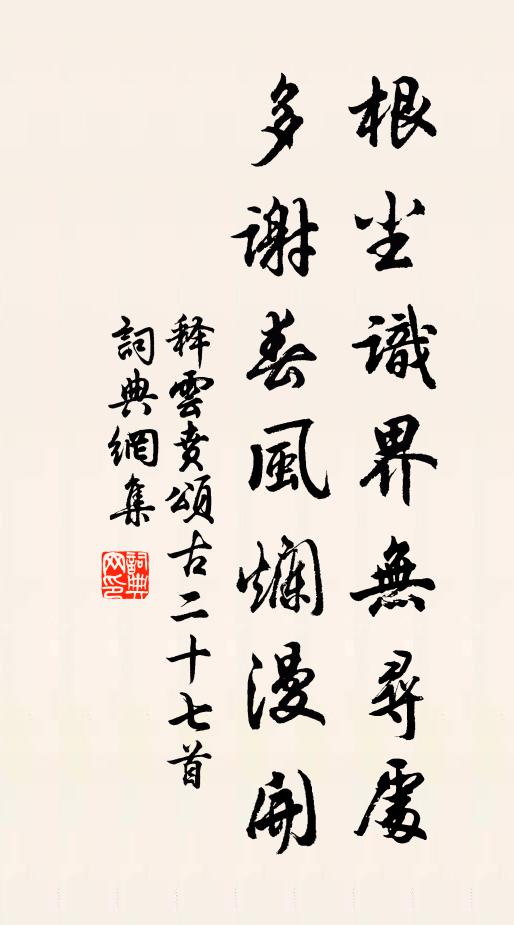 根尘識界無尋處
多謝春風爛漫開
释雲賁頌古二十七首
詞典網集
詞典網印